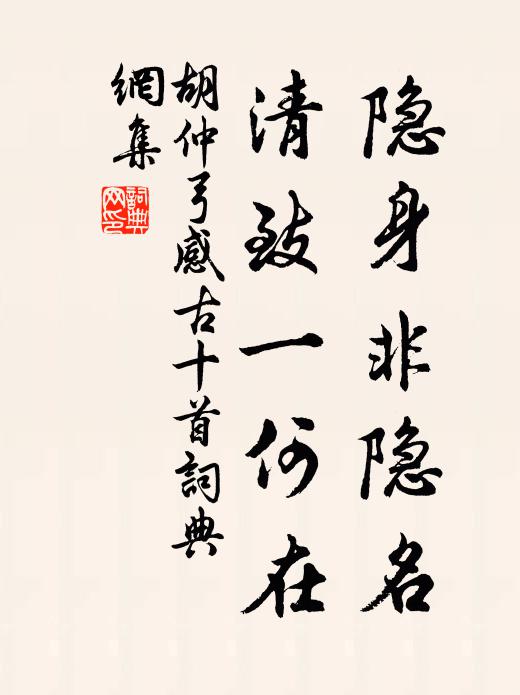 隐身非隐名
清致一何在
胡仲弓感古十首詞典
網集
詞典
网印